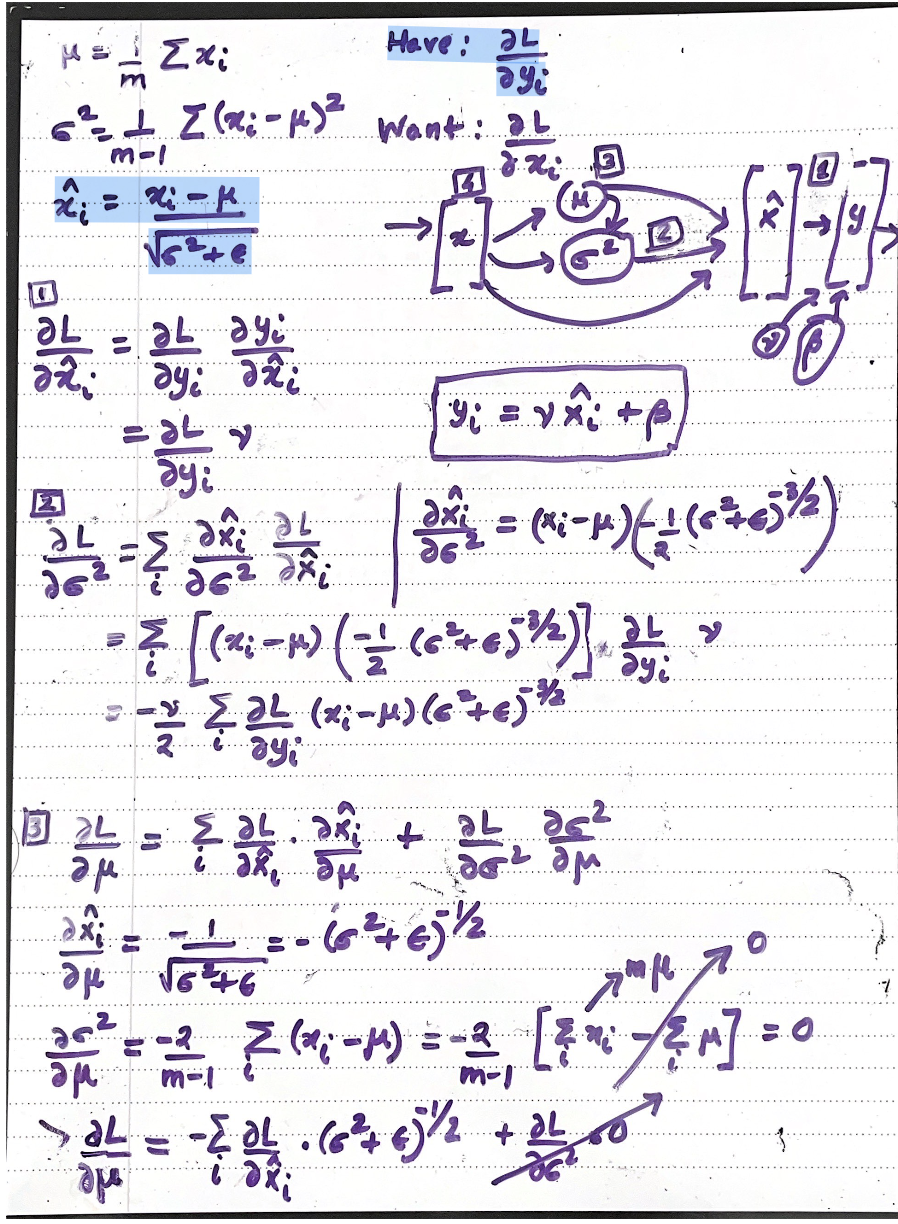 μ = 1/m Σ xᵢ
σ² = 1/(m-1) Σ (xᵢ - μ)²
x̂ᵢ = (xᵢ - μ)/√(σ² + ϵ)
Have: ∂L/∂yᵢ
Want: ∂L/∂xᵢ
4 3 1
x μ σ² 2 x̂ y
ν β
1
∂L/∂x̂ᵢ = ∂L/∂yᵢ ∂yᵢ/∂x̂ᵢ
= ∂L/∂yᵢ ν
yᵢ = ν x̂ᵢ + β
2
∂L/∂σ² = Σᵢ ∂x̂ᵢ/∂σ² ∂L/∂x̂ᵢ | ∂x̂ᵢ/∂σ² = (xᵢ - μ)(-1/2 (σ² + ϵ)^(-3/2))
= Σᵢ [(xᵢ - μ)(-1/2 (σ² + ϵ)^(-3/2))] · ∂L/∂yᵢ ν
= -ν/2 Σᵢ ∂L/∂yᵢ (xᵢ - μ)(σ² + ϵ)^(-3/2)
3 ∂L/∂μ = Σᵢ ∂L/∂x̂ᵢ · ∂x̂ᵢ/∂μ + ∂L/∂σ² ∂σ²/∂μ
∂x̂ᵢ/∂μ = -1/√(σ² + ϵ) = -(σ² + ϵ)^(-1/2)
mμ 0
∂σ²/∂μ = -2/(m-1) Σᵢ (xᵢ - μ) = -2/(m-1) [Σᵢ xᵢ - Σᵢ μ] = 0
∂L/∂μ = -Σᵢ ∂L/∂x̂ᵢ · (σ² + ϵ)^(-1/2) + ∂L/∂σ² · 0